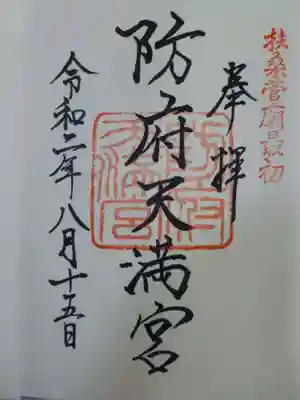 扶桑菅廟最初
奉拝
防府天満宮
令和二年八月十五日
防府天満宮